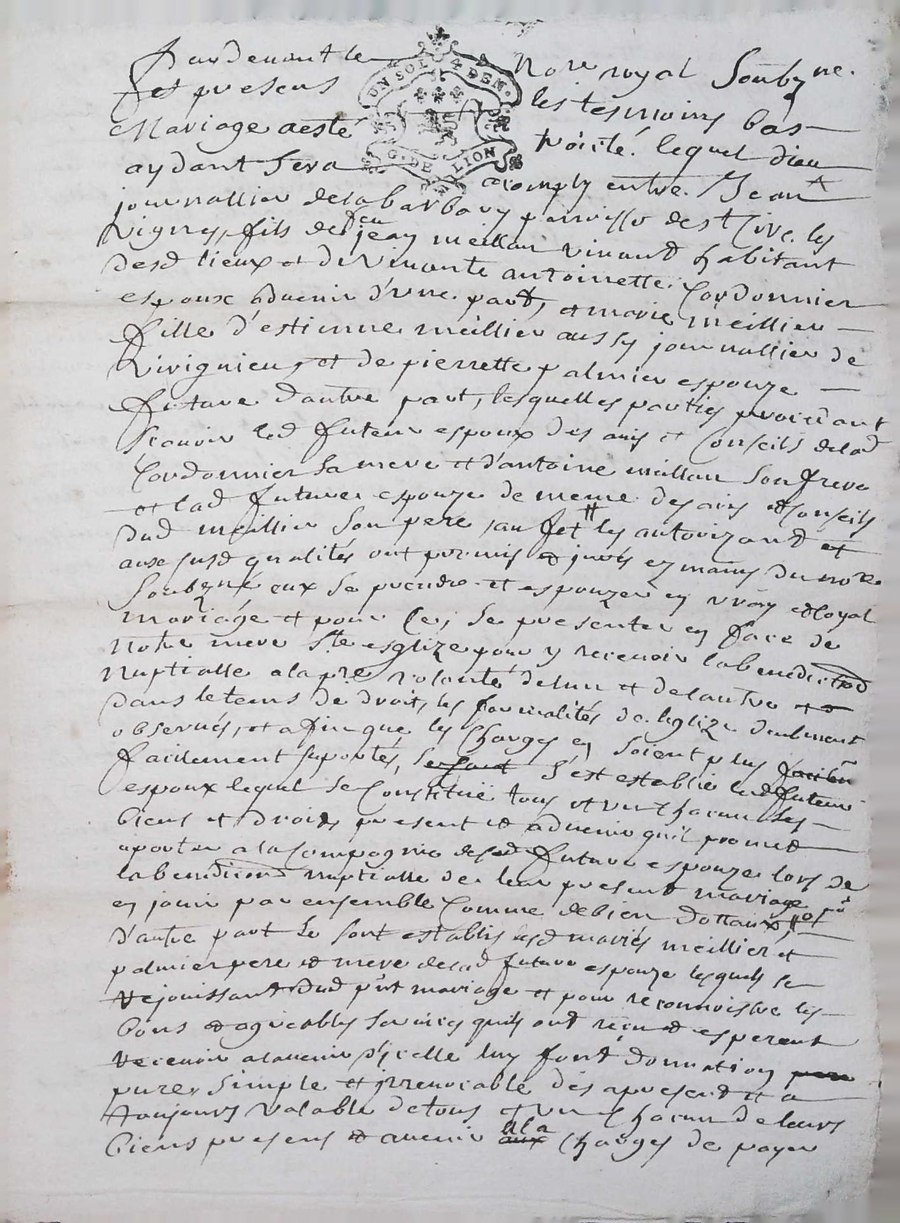 Pardevant le Nore royal Soubzne.
et presens les tesmoins bas
Mariage a esté traicté. lequel dieu
UN SOL 4 DEN.
G. DE LION
aydant sera acomply entre. Jean
journallier de la barbary parroisse de st Cire les
Vignes, fils de feu jean meillan vivant habitant
desd lieux et de vivante antoinette Cordonnier
espoux advenir d'une part, et marie meillier
fille d'estienne meillier aussy journallier de
et de pierrette palmier espouze
future d'autre part, lesquelles parties procédant
scavoir led futeur espoux des avis et Conseils de lad
Cordonnier sa mere et d'antoine meillan son frere
et lad future espouze de meme des avis et Conseils
dud meillier son pere les autorizand et
aux susd qualités ont promis et jurés ez mains du nore
Soubzne eux se prendre et espouzer en vray et loyal
mariage et pour ce se presenter en face de
notre mere Ste esglize pour y recevoir la benediction
nuptialle a la pre volonté de lun et de lautre et
dans le tems de droit, les formalités de leglize deuement
observés, et afin que les Charges en soient plus
facilement suportés, s'est establie led futeur
espoux lequel se Constitue tous et un chacun ses
biens et droits present et advenir qu'il promet
aporter a la Compagnie de sad future espouze lors de
la benediction nuptialle de leur present mariage pr
en jouir par ensemble Comme de bien dottaux et
d'autre part se sont establis lesd mariés meillier et
palmier pere et mere de lad future espouze lesquels se
rejouissant dud pnt mariage et pour reconnoistre les
bons et agreables services quils ont recu et esperent
recevoir a lavenir d'icelle luy font donnation
pure, simple et irrevocable des apresend et a
toujours valable de tous et un Chacun de leurs
biens presens et avenir a la Charges de payer